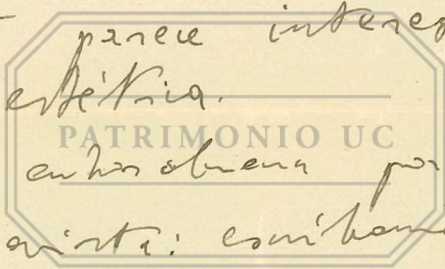 parece interes
estética.
PATRIMONIO UC
enhorabuena por
evista: escríbame